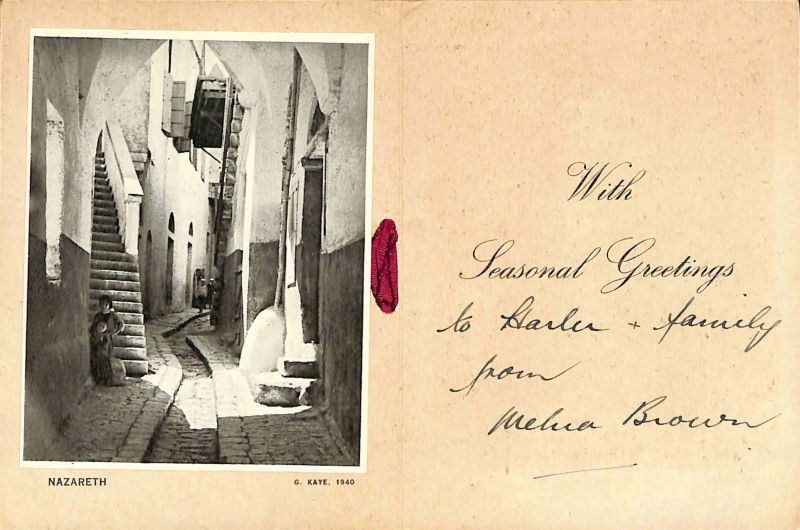 NAZARETH
G. KAYE. 1940
With
Seasonal Greetings
to + family
from
Brown